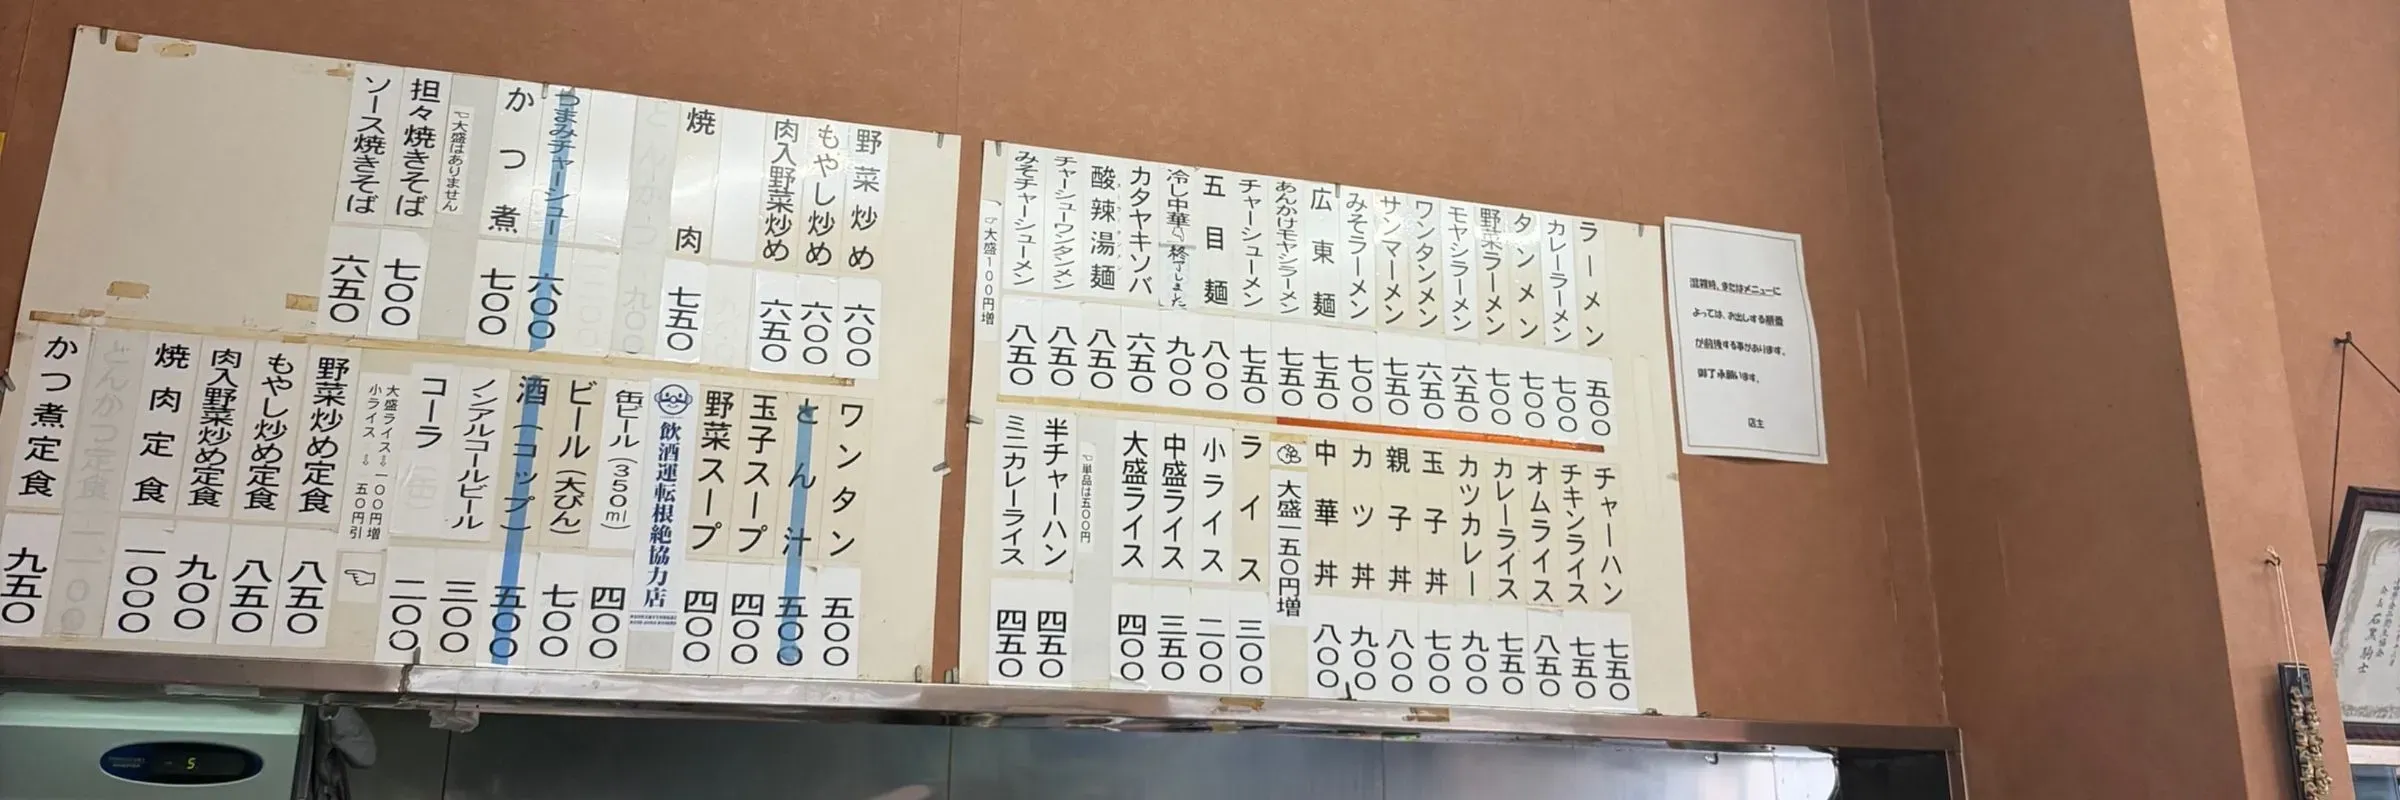 ラーメン 五〇〇
カレーラーメン 七〇〇
タンメン 七〇〇
野菜ラーメン 七〇〇
モヤシラーメン 六五〇
ワンタンメン 六五〇
サンマーメン 七五〇
みそラーメン 七〇〇
広東麺 七五〇
あんかけモヤシラーメン 七五〇
チャーシューメン 七五〇
五目麺 八〇〇
冷し中華 終了しました 九〇〇
カタヤキソバ 六五〇
酸辣湯麺 八五〇
チャーシューワンタンメン 八五〇
みそチャーシューメン 八五〇
☜大盛100円増
チャーハン 七五〇
チキンライス 七五〇
オムライス 八五〇
カレーライス 七五〇
カツカレー 九〇〇
玉子丼 七〇〇
親子丼 八〇〇
カツ丼 九〇〇
中華丼 八〇〇
大盛一五〇円増
ライス 三〇〇
小ライス 二〇〇
中盛ライス 三五〇
大盛ライス 四〇〇
☜単品は五〇〇円
半チャーハン 四五〇
ミニカレーライス 四五〇
野菜炒め 六〇〇
もやし炒め 六〇〇
肉入野菜炒め 六五〇
焼肉 七五〇
とんかつ 九〇〇
つまみチャーシュー 六〇〇
かつ煮 七〇〇
☜大盛はありません
担々焼きそば 七〇〇
ソース焼きそば 六五〇
ワンタン 五〇〇
とん汁 五〇〇
玉子スープ 四〇〇
野菜スープ 四〇〇
飲酒運転根絶協力店
缶ビール(350ml) 四〇〇
ビール(大びん) 七〇〇
酒(コップ) 五〇〇
ノンアルコールビール 三〇〇
コーラ(缶) 二〇〇
大盛ライス⇨一〇〇円増
小ライス⇨五〇円引
野菜炒め定食 八五〇
もやし炒め定食 八五〇
肉入野菜炒め定食 九〇〇
焼肉定食 一〇〇〇
とんかつ定食 一一〇〇
かつ煮定食 九五〇
混雑時、またはメニューに
よっては、お出しする順番
が前後する事があります。
御了承願います。
店主
会長 石黒
5